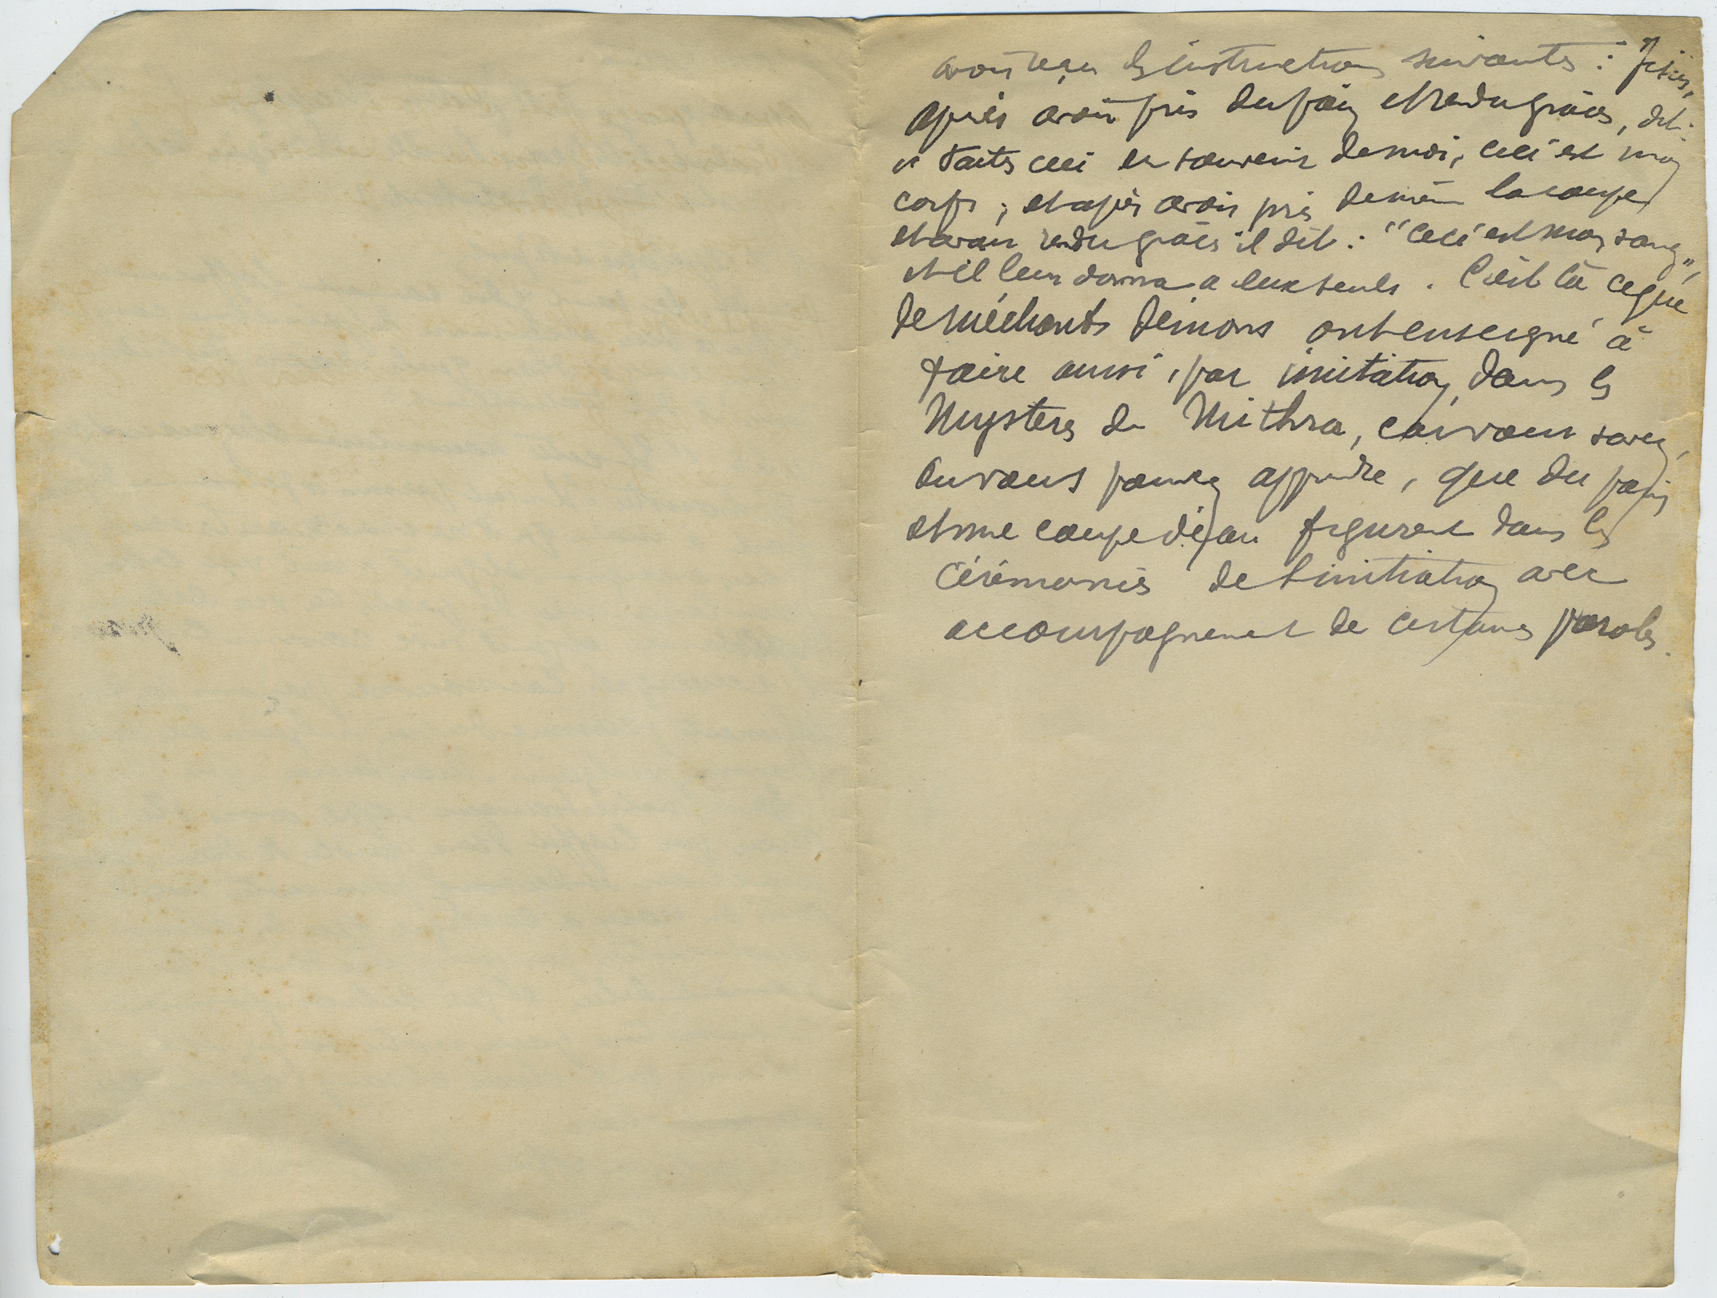 avoir reçu les instructions suivantes : Jésus,
après avoir pris du pain et rendu grâces, dit :
« Faites ceci en souvenir de moi, ceci est mon
corps ; et après avoir pris de même la coupe
et avoir rendu grâces il dit : "ceci est mon sang",
et il leur donna à eux seuls. C'est là ce que
de méchants démons ont enseigné à
faire aussi, par imitation, dans les
Mystères de Mithra, car vous savez,
ou vous pouvez apprendre, que du pain
et une coupe d'eau figurent dans les
cérémonies de l'initiation avec
accompagnement de certaines paroles.